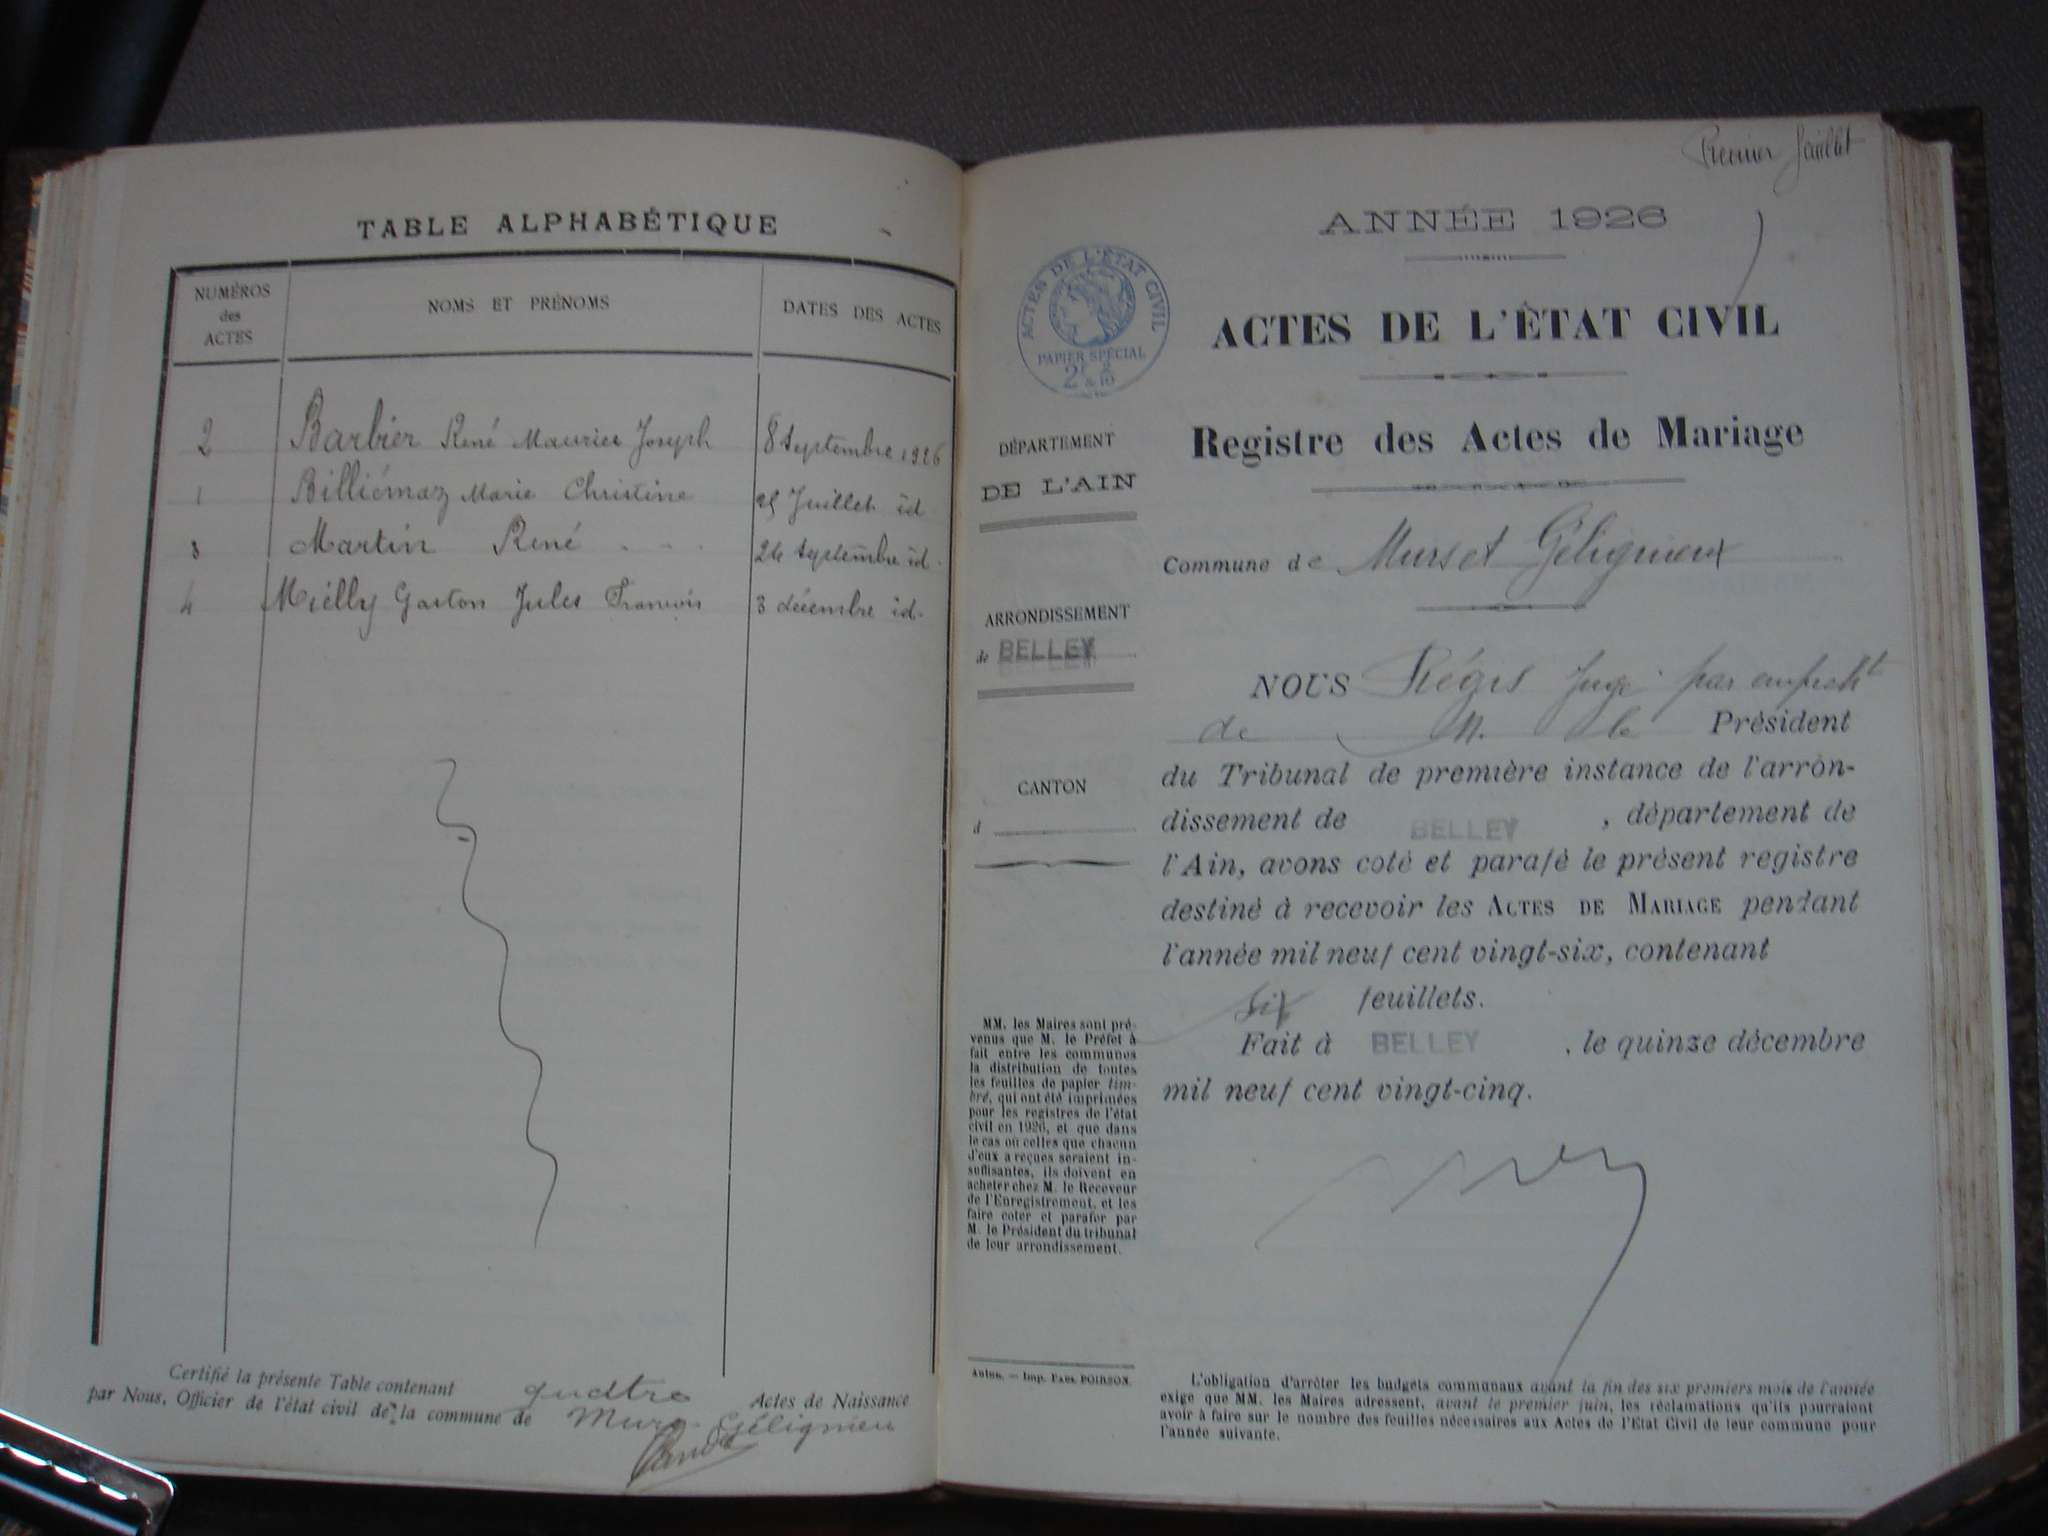 TABLE ALPHABÉTIQUE
NUMÉROS des ACTES | NOMS ET PRÉNOMS | DATES DES ACTES
2 Barbier René Maurice Joseph 8 Septembre 1926
1 Billiémaz Marie Christine 25 Juillet id
3 Martin René 24 Septembre id.
4 Mielly Gaston Jules François 3 décembre id.
Certifié la présente Table contenant quatre Actes de Naissance
par Nous, Officier de l'état civil de la commune de Murs-Gélignieu
Premier feuillet
ANNÉE 1926
ACTES DE L'ÉTAT CIVIL
PAPIER SPÉCIAL
ACTES DE L'ÉTAT CIVIL
Registre des Actes de Mariage
DÉPARTEMENT
DE L'AIN
Commune de Murs et Gélignieux
ARRONDISSEMENT
de BELLEY
CANTON
d
NOUS Régis Juge par empecht
de M. le Président
du Tribunal de première instance de l'arron-
dissement de BELLEY, département de
l'Ain, avons coté et parafé le présent registre
destiné à recevoir les ACTES DE MARIAGE pendant
l'année mil neuf cent vingt-six, contenant
six feuillets.
Fait à BELLEY, le quinze décembre
mil neuf cent vingt-cinq.
MM. les Maires sont pré-
venus que M. le Préfet a
fait entre les communes
la distribution de toutes
les feuilles de papier tim-
bré, qui ont été imprimées
pour les registres de l'état
civil en 1926, et que dans
le cas où celles que chacun
d'eux a reçues seraient in-
suffisantes, ils doivent en
acheter chez M. le Receveur
de l'Enregistrement, et les
faire coter et parafer par
M. le Président du tribunal
de leur arrondissement.
Autun. — Imp. Paul POIRSON.
L'obligation d'arrêter les budgets communaux avant la fin des six premiers mois de l'année
exige que MM. les Maires adressent, avant le premier juin, les réclamations qu'ils pourraient
avoir à faire sur le nombre des feuilles nécessaires aux Actes de l'Etat Civil de leur commune pour
l'année suivante.